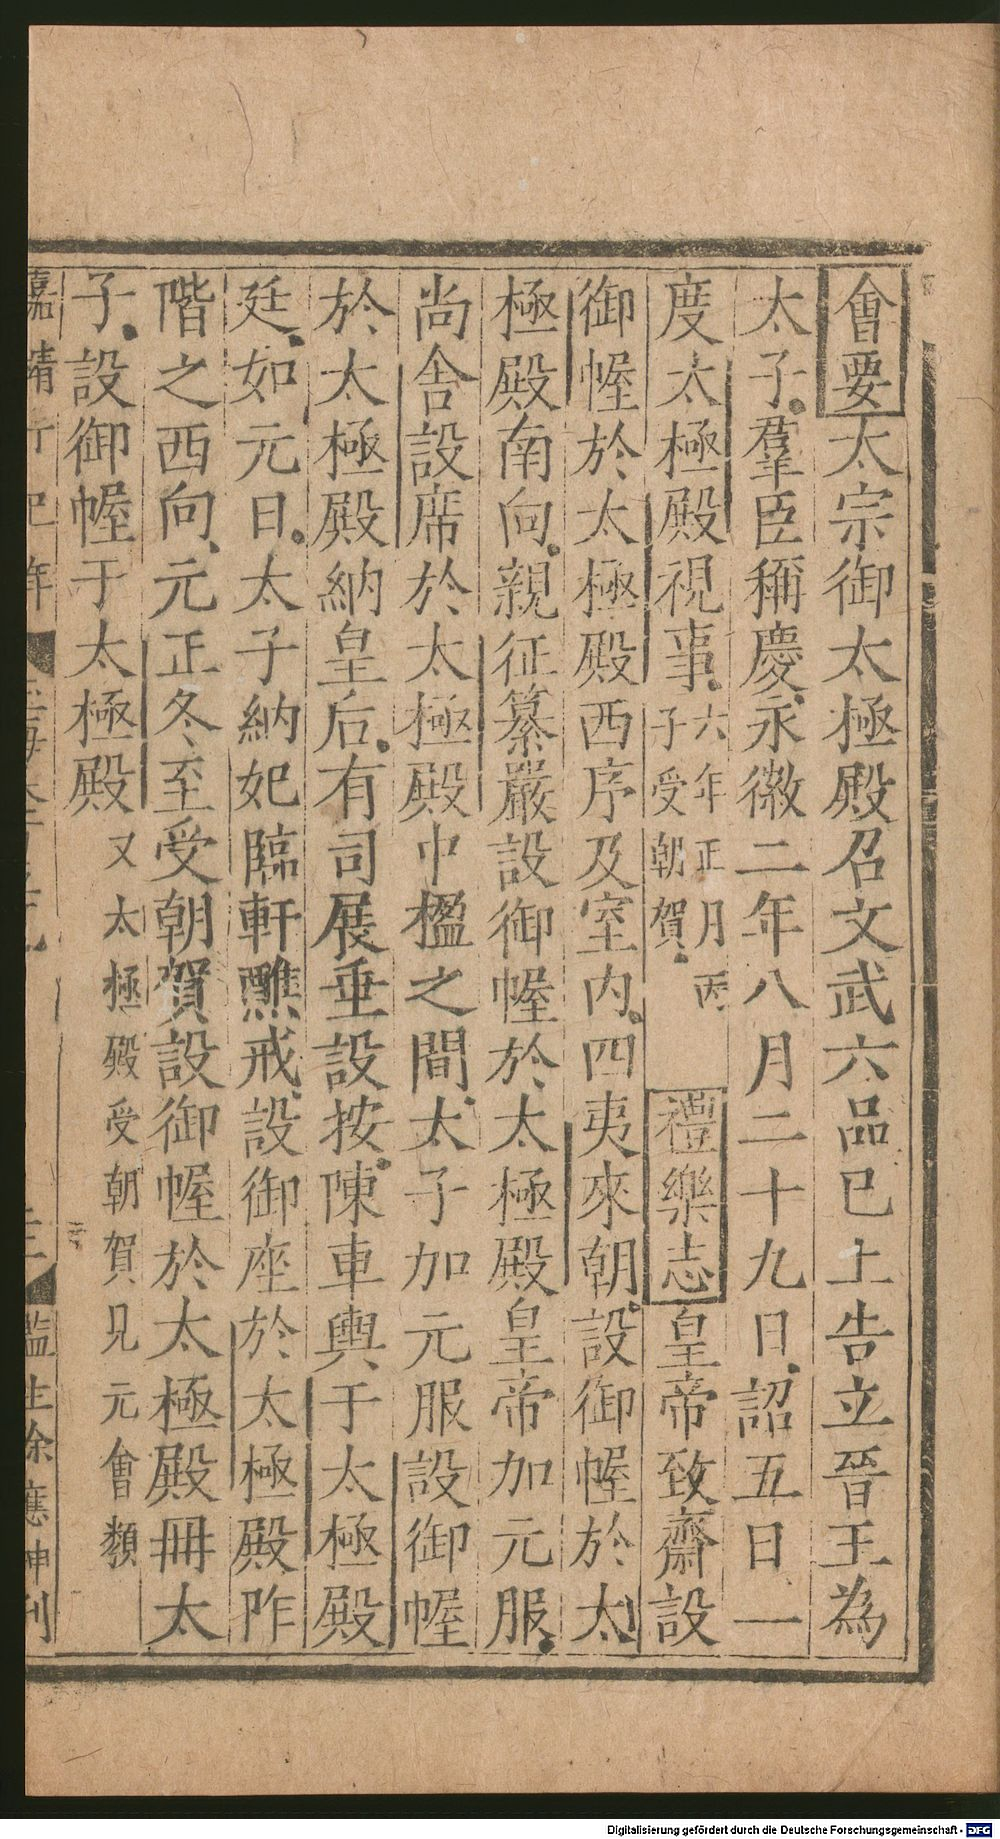 會要太宗御太極殿召文武六品已上告立晉王為
太子羣臣稱慶永徽二年八月二十九日詔五日一
度太極殿視事六年正月丙子受朝賀禮樂志皇帝致齋設
御幄於太極殿西序及室內四夷來朝設御幄於太
極殿南向親征纂嚴設御幄於太極殿皇帝加元服
尚舍設席於太極殿中楹之間太子加元服設御幄
於太極殿納皇后有司展垂設按陳車輿于太極殿
廷如元日太子納妃臨軒醮戒設御座於太極殿阼
階之西向元正冬至受朝賀設御幄於太極殿冊太
子設御幄于太極殿又太極殿受朝賀見元會類
嘉靖 年 監生徐應 刊
Digitalisierung gefördert durch die Deutsche Forschungsgemeinschaft - DFG